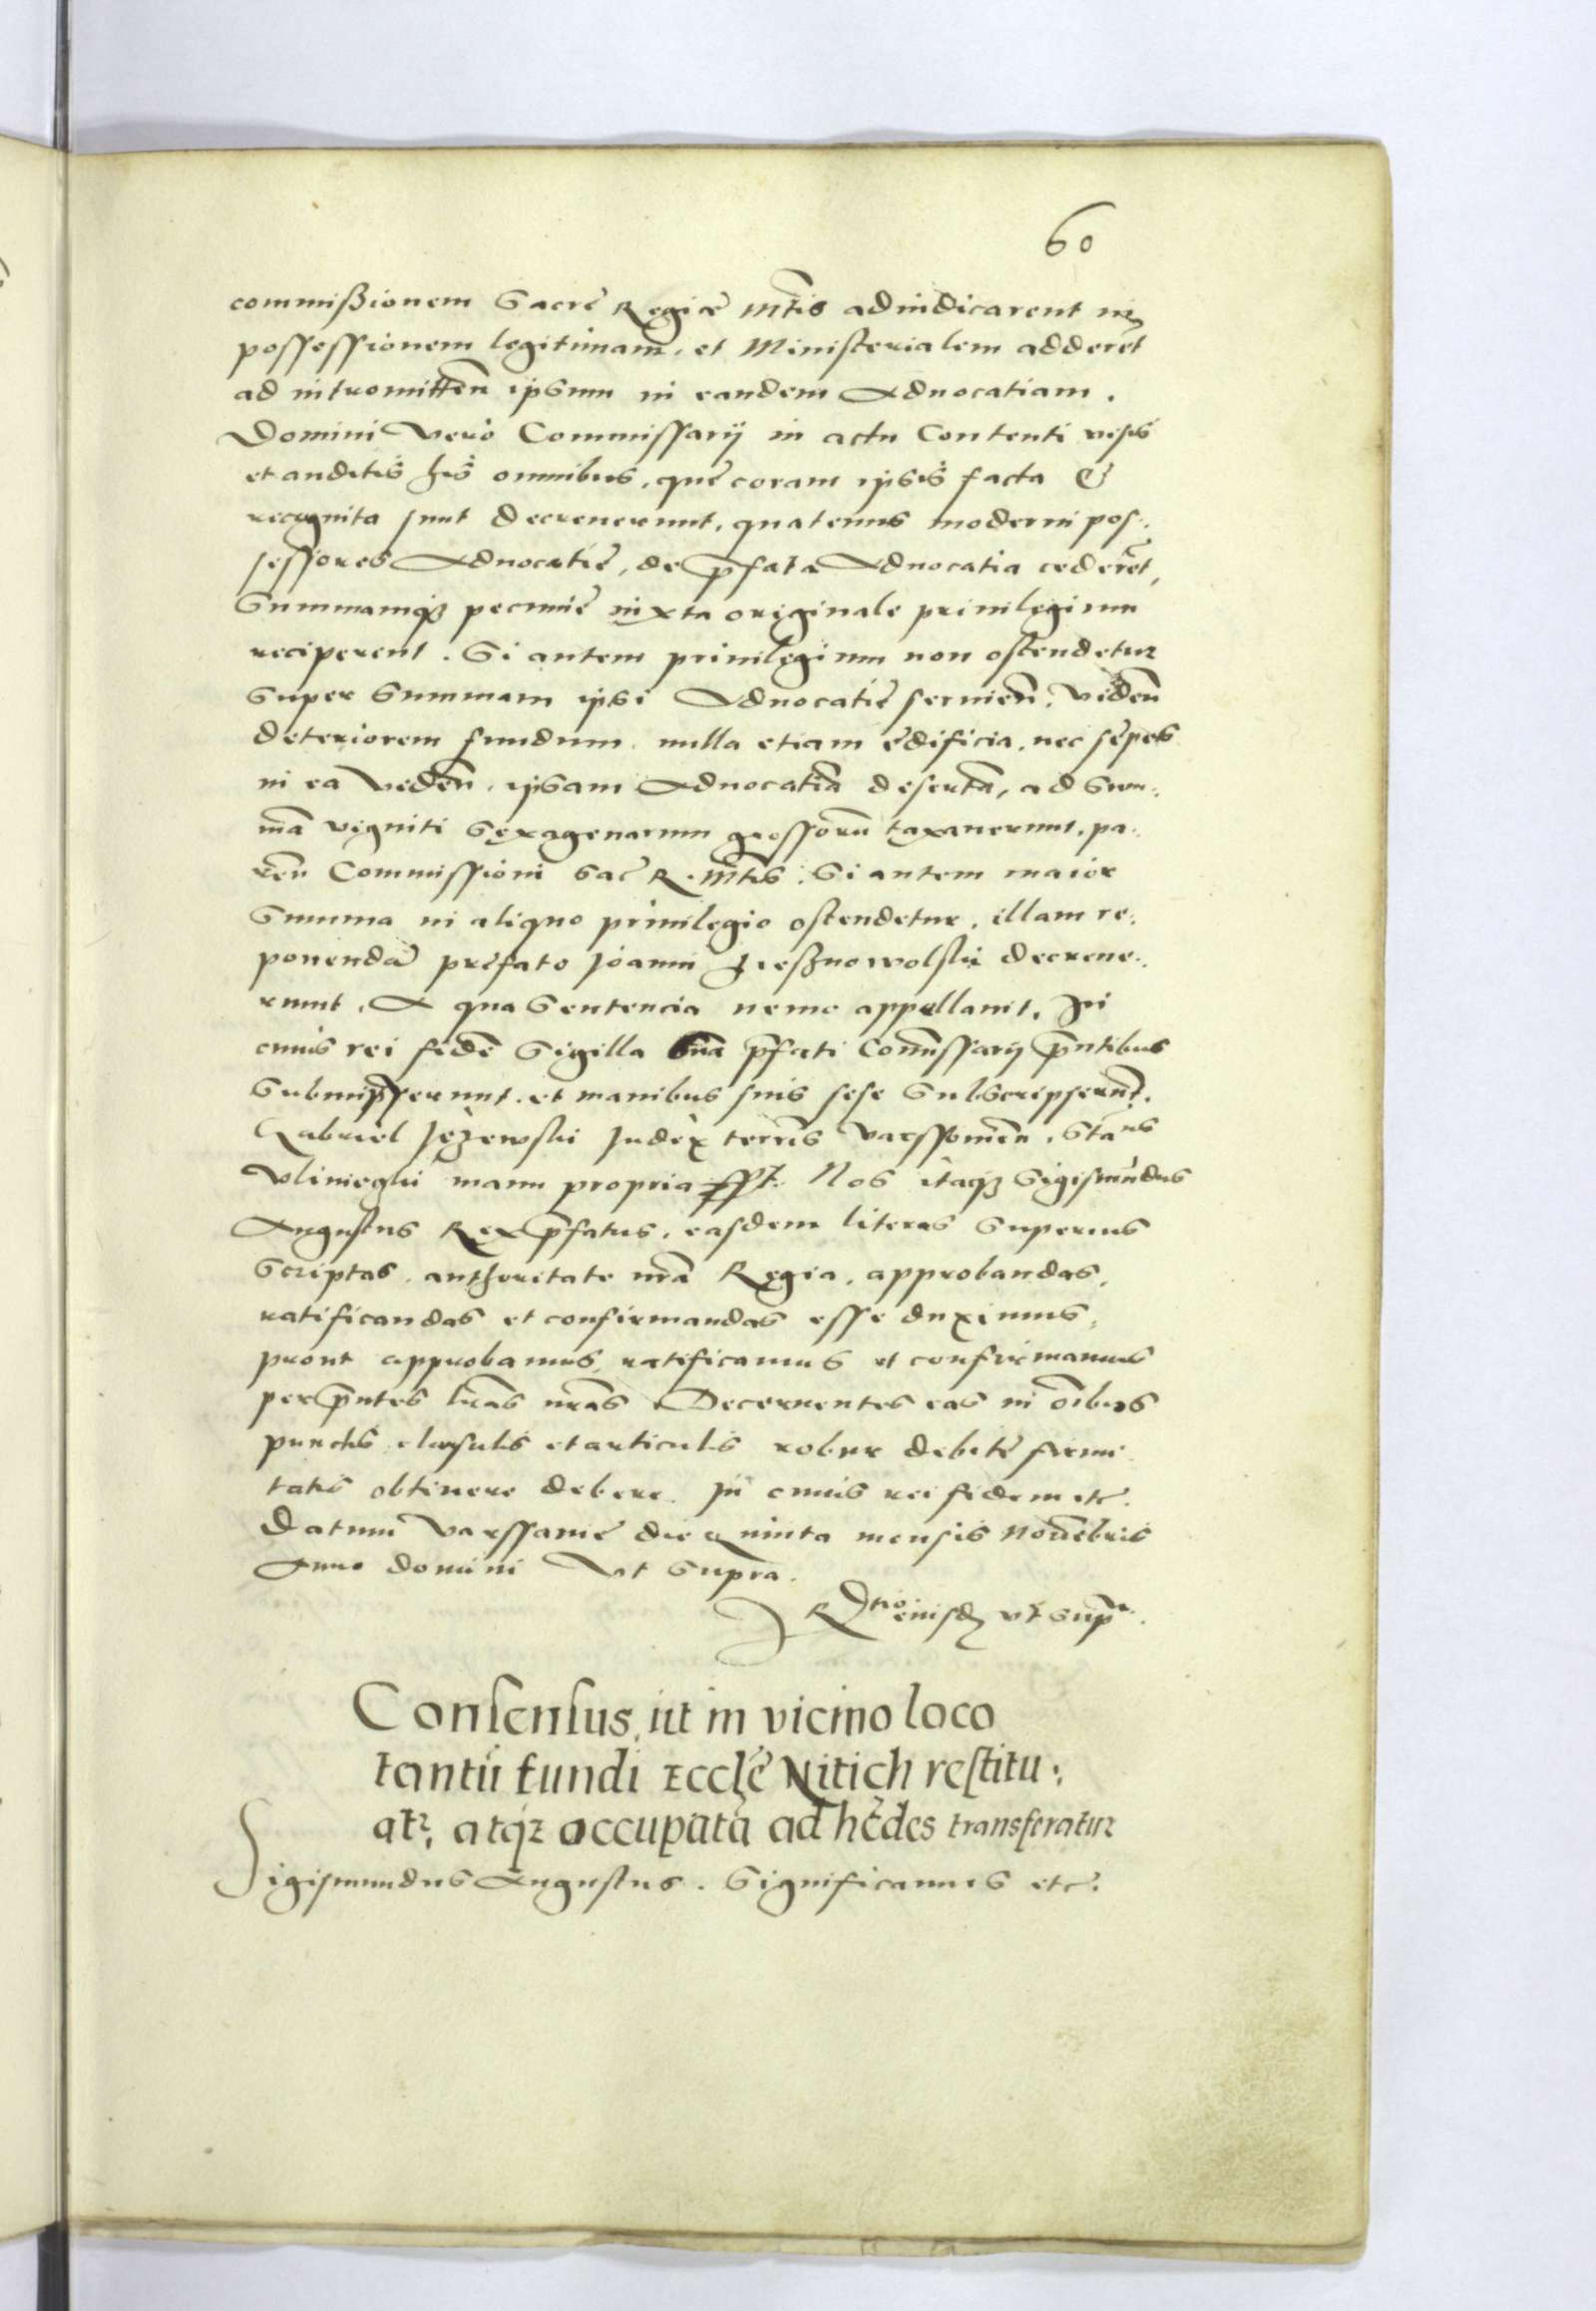 60
commißionem Sacrę Regiæ Mtis adiudicarent in
possessionem legitimam, et Ministerialem adderēt
ad intromittēn ipsum in eandem Aduocatiam.
Domini Vero Commissarij in actu Contenti visis
et auditis his omnibus, que coram ipsis facta &
recognita sunt decreuerunt, quatenus moderni pos:
sessores Aduocatię, de p̄fata Aduocatia cederēt,
Summamq3 pecunię iuxta originale priuilegium
reciperent. Si autem priuilegium non ostendetur
super summam ipsi Aduocatię seruieñ. Vidēn
deteriorem fundum, nulla etiam ędificia, nec sępes
in ea Vidēn, ipsam Aduocatiā desertā, ad sum:
mā viginti sexagenarum grossorū taxauerunt, pa:
rēn Commissioni Sac̄ R. Mtis. Si autem maior
Summa in aliquo priuilegio ostendetur, illam re:
ponendā pręfato Joanni Grzeßnowolski decreue:
runt, A qua Sentencia nemo appellauit. In
cuius rei fidē Sigilla sua p̄fati Com̄issarij p̄ntibus
Submißerunt, et manibus suis sese Subscripserūt.
Gabriel Jeżewski Judex terrīs Varssouieñ, Staus
Vlinieski manu propria sspt. Nos itaq3 Sigismundus
Augustus Rex p̄fatus, easdem literas Superius
Scriptas, authoritate nrā Regia, approbandas,
ratificandas et confirmandas esse duximus,
prout approbamus, ratificamus et confirmamus
per p̄ntes lrās nrās Decernentes eas in ōibus
punctis clausulis et articulis robur debitę firmi
tatis obtinere debere. In cuius rei fidem etc.
Datum Varssauię die quinta mensis Nouēbris
Anno domini Vt Supra.
Rtio eiusdē vt supra.
Consensus, ut in vicino loco
tantū fundi Ecclę Nitich restitu:
atr, atq3 occupatā ad hędes transferatur
Sigismundus Augustus. Significamus etc.